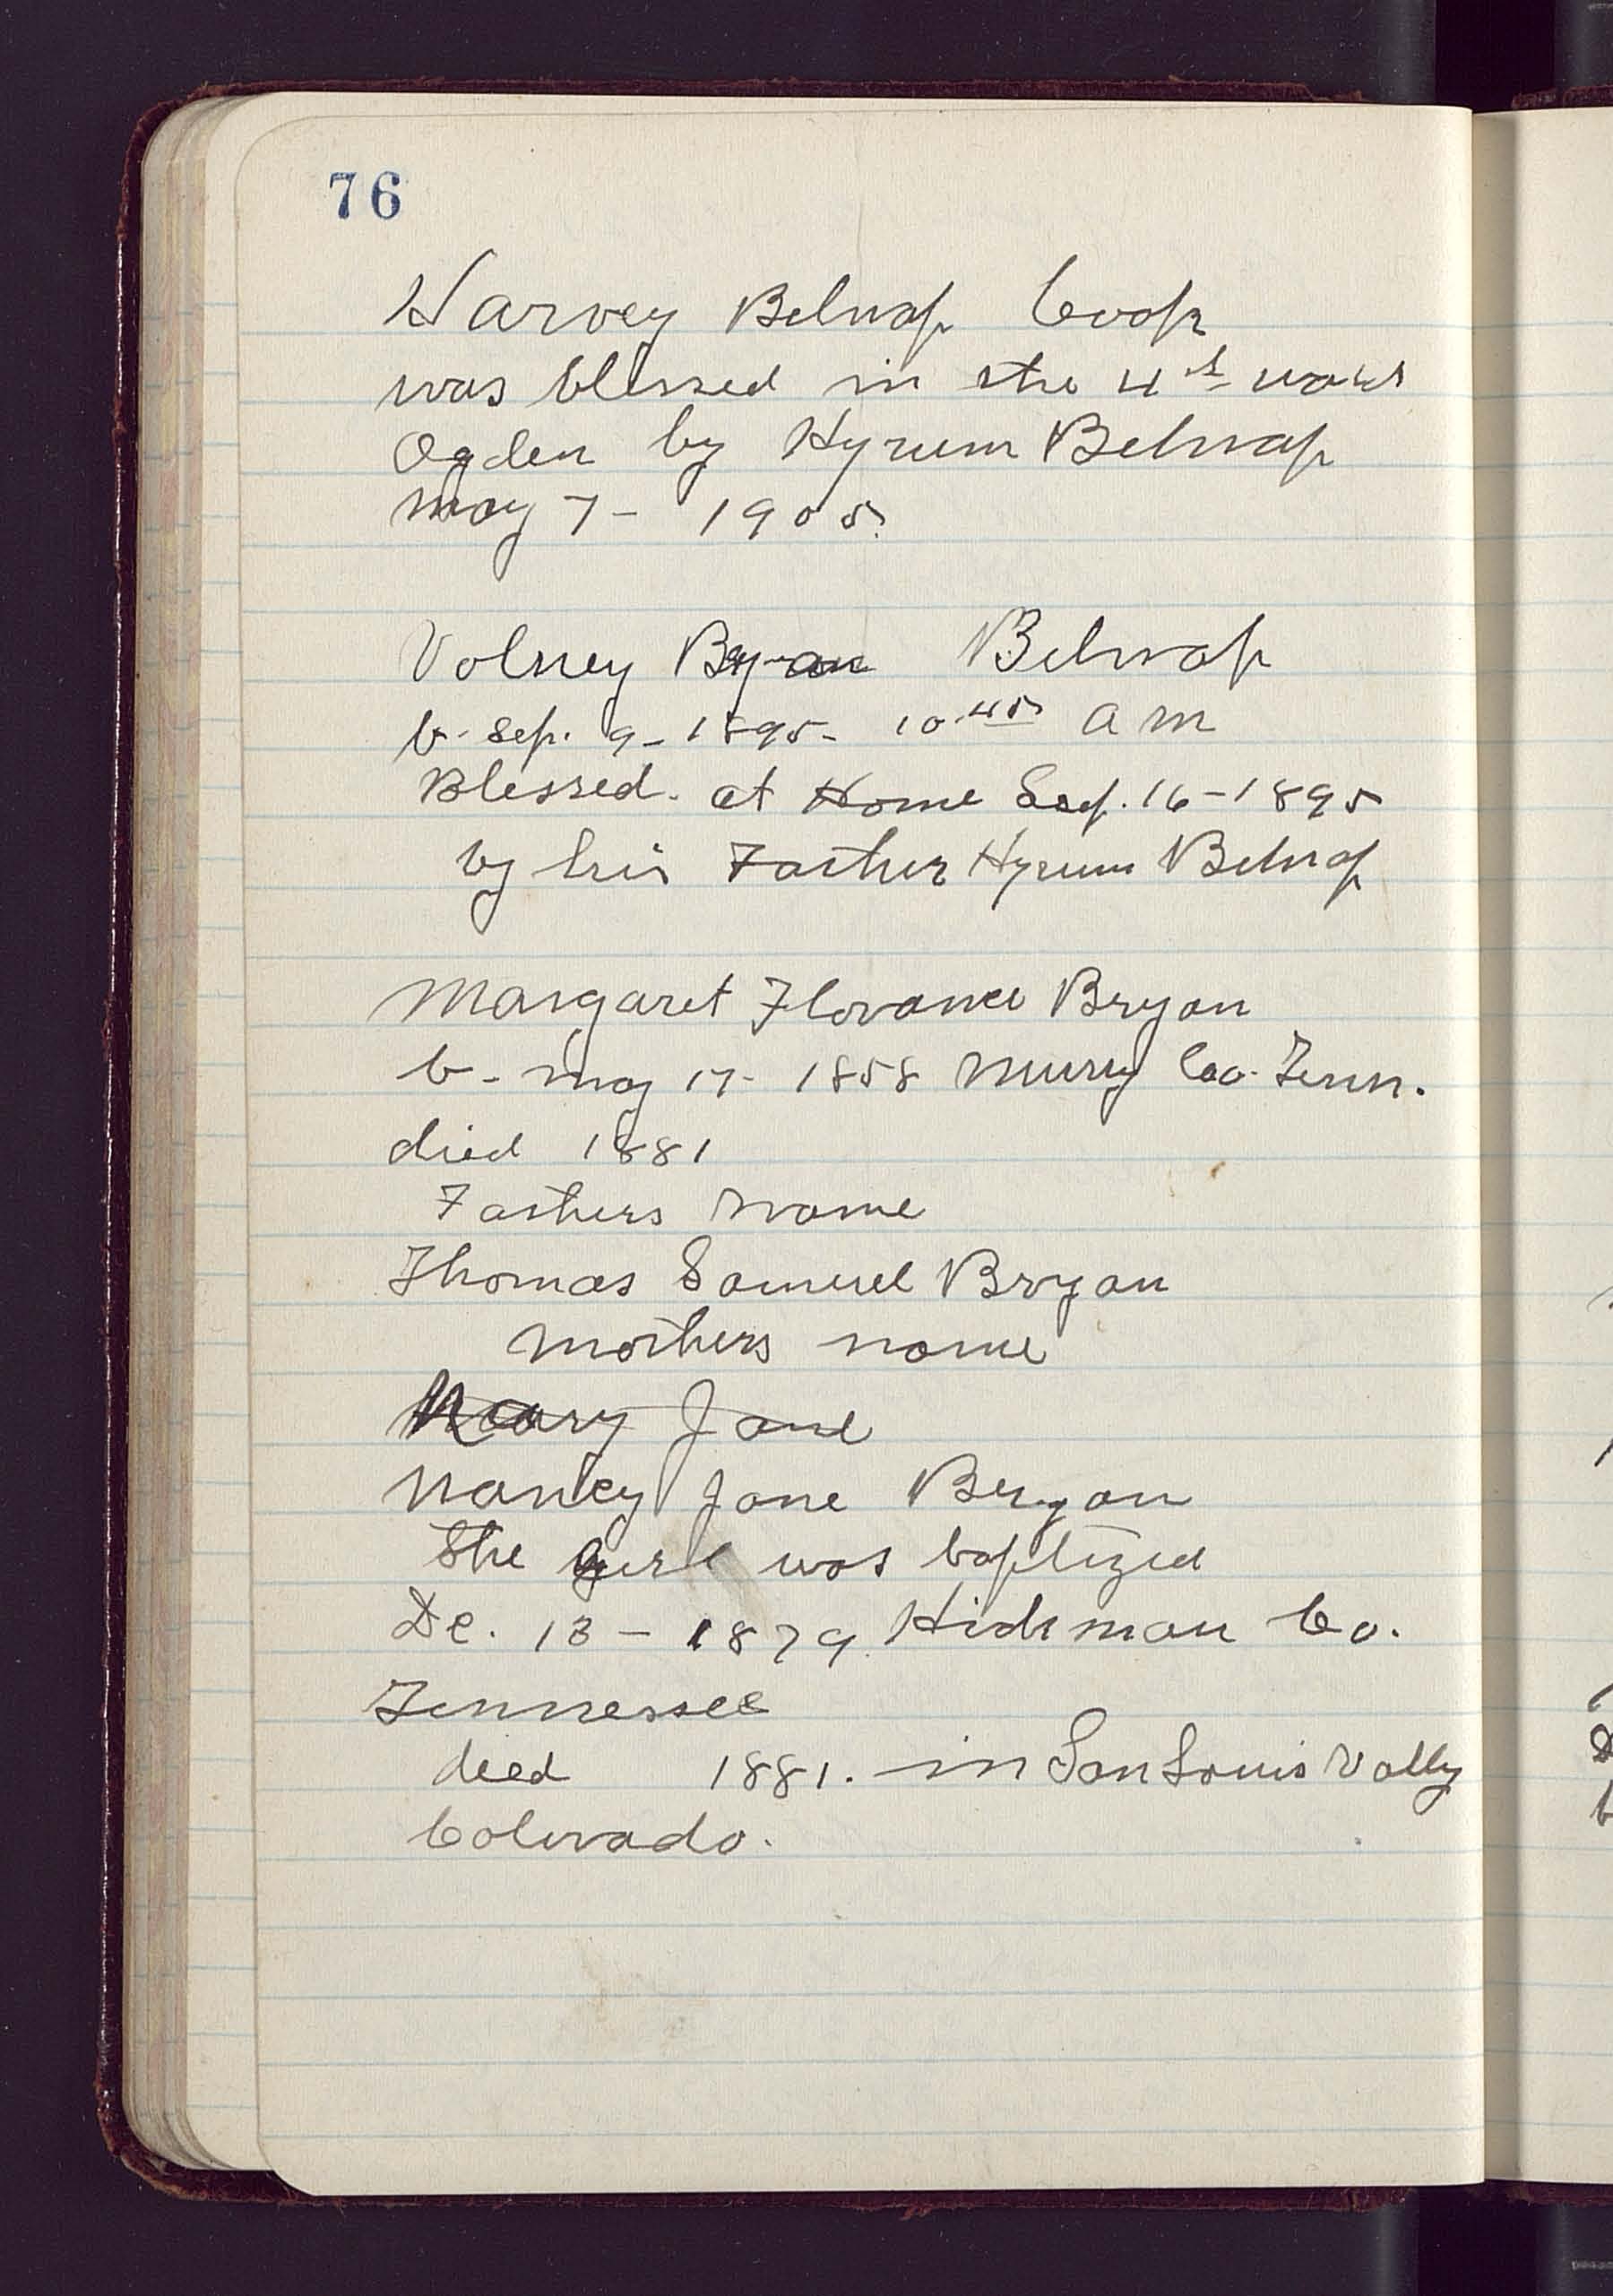 76
Harvey Belnap Cook
was blessed in the 4th ward
Ogden by Hyrum Belnap
may 7 - 1905.
Volney Bryan Belnap
b. Sep. 9 - 1895 - 10.45 a m
Blessed. at Home Sep. 16 - 1895
by his Father Hyrum Belnap
Margaret Florance Bryan
b - may 17 - 1858 Mury Co. Tenn.
died 1881
Fathers name
Thomas Samuel Bryan
mothers name
Mary Jane
Nancy Jane Bryan
The girl was baptized
De. 13 - 1879. Hickman Co.
Tennessee
died 1881. in San Louis Vally
Colorado.